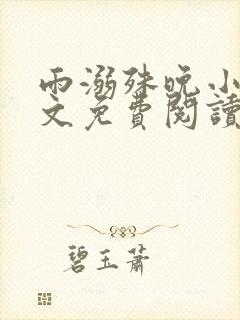 雨溺殊晚小
文免費閱讀
碧玉蕭